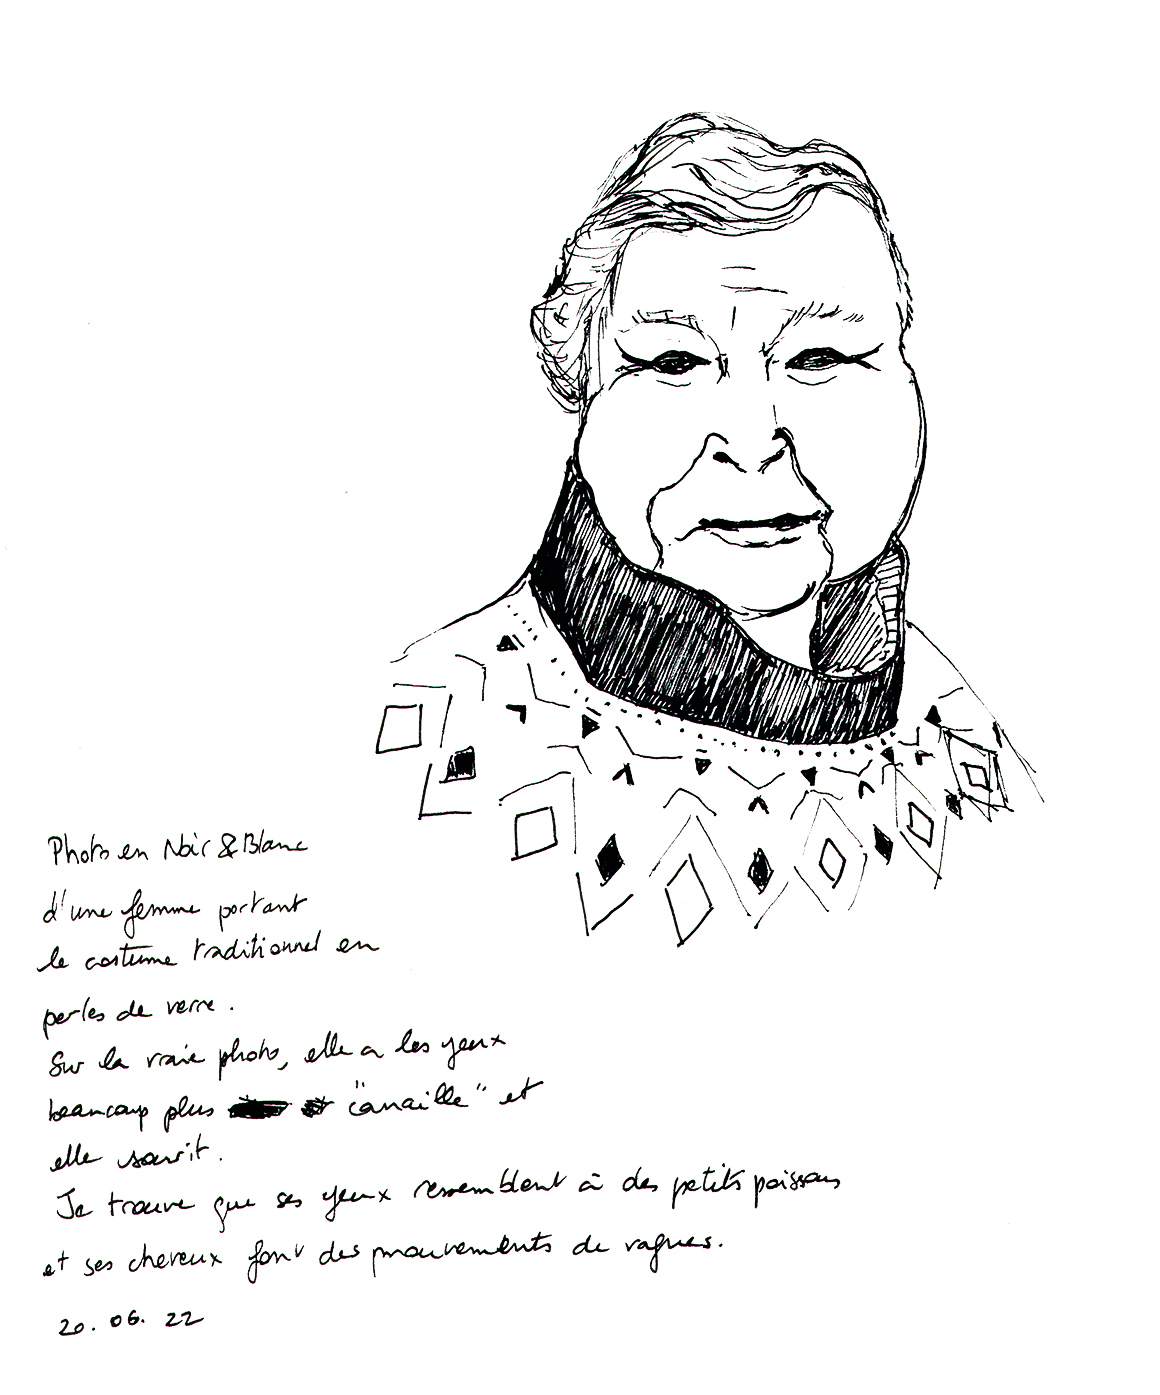 Photo en Noir & Blanc
d'une femme portant
le costume traditionnel en
perles de verre.
Sur la vraie photo, elle a les yeux
beaucoup plus "canaille" et
elle sourit.
Je trouve que ses yeux ressemblent à des petits poissons
et ses cheveux font des mouvements de vagues.
20. 06. 22